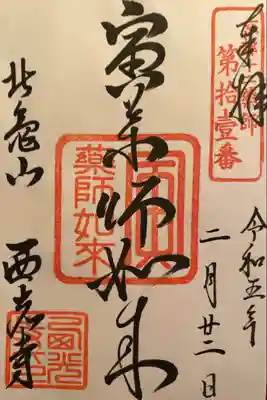 奉拝
第拾壹番
令和五年
二月廿二日
寅薬师如来
藥師如來
北亀山　西光寺